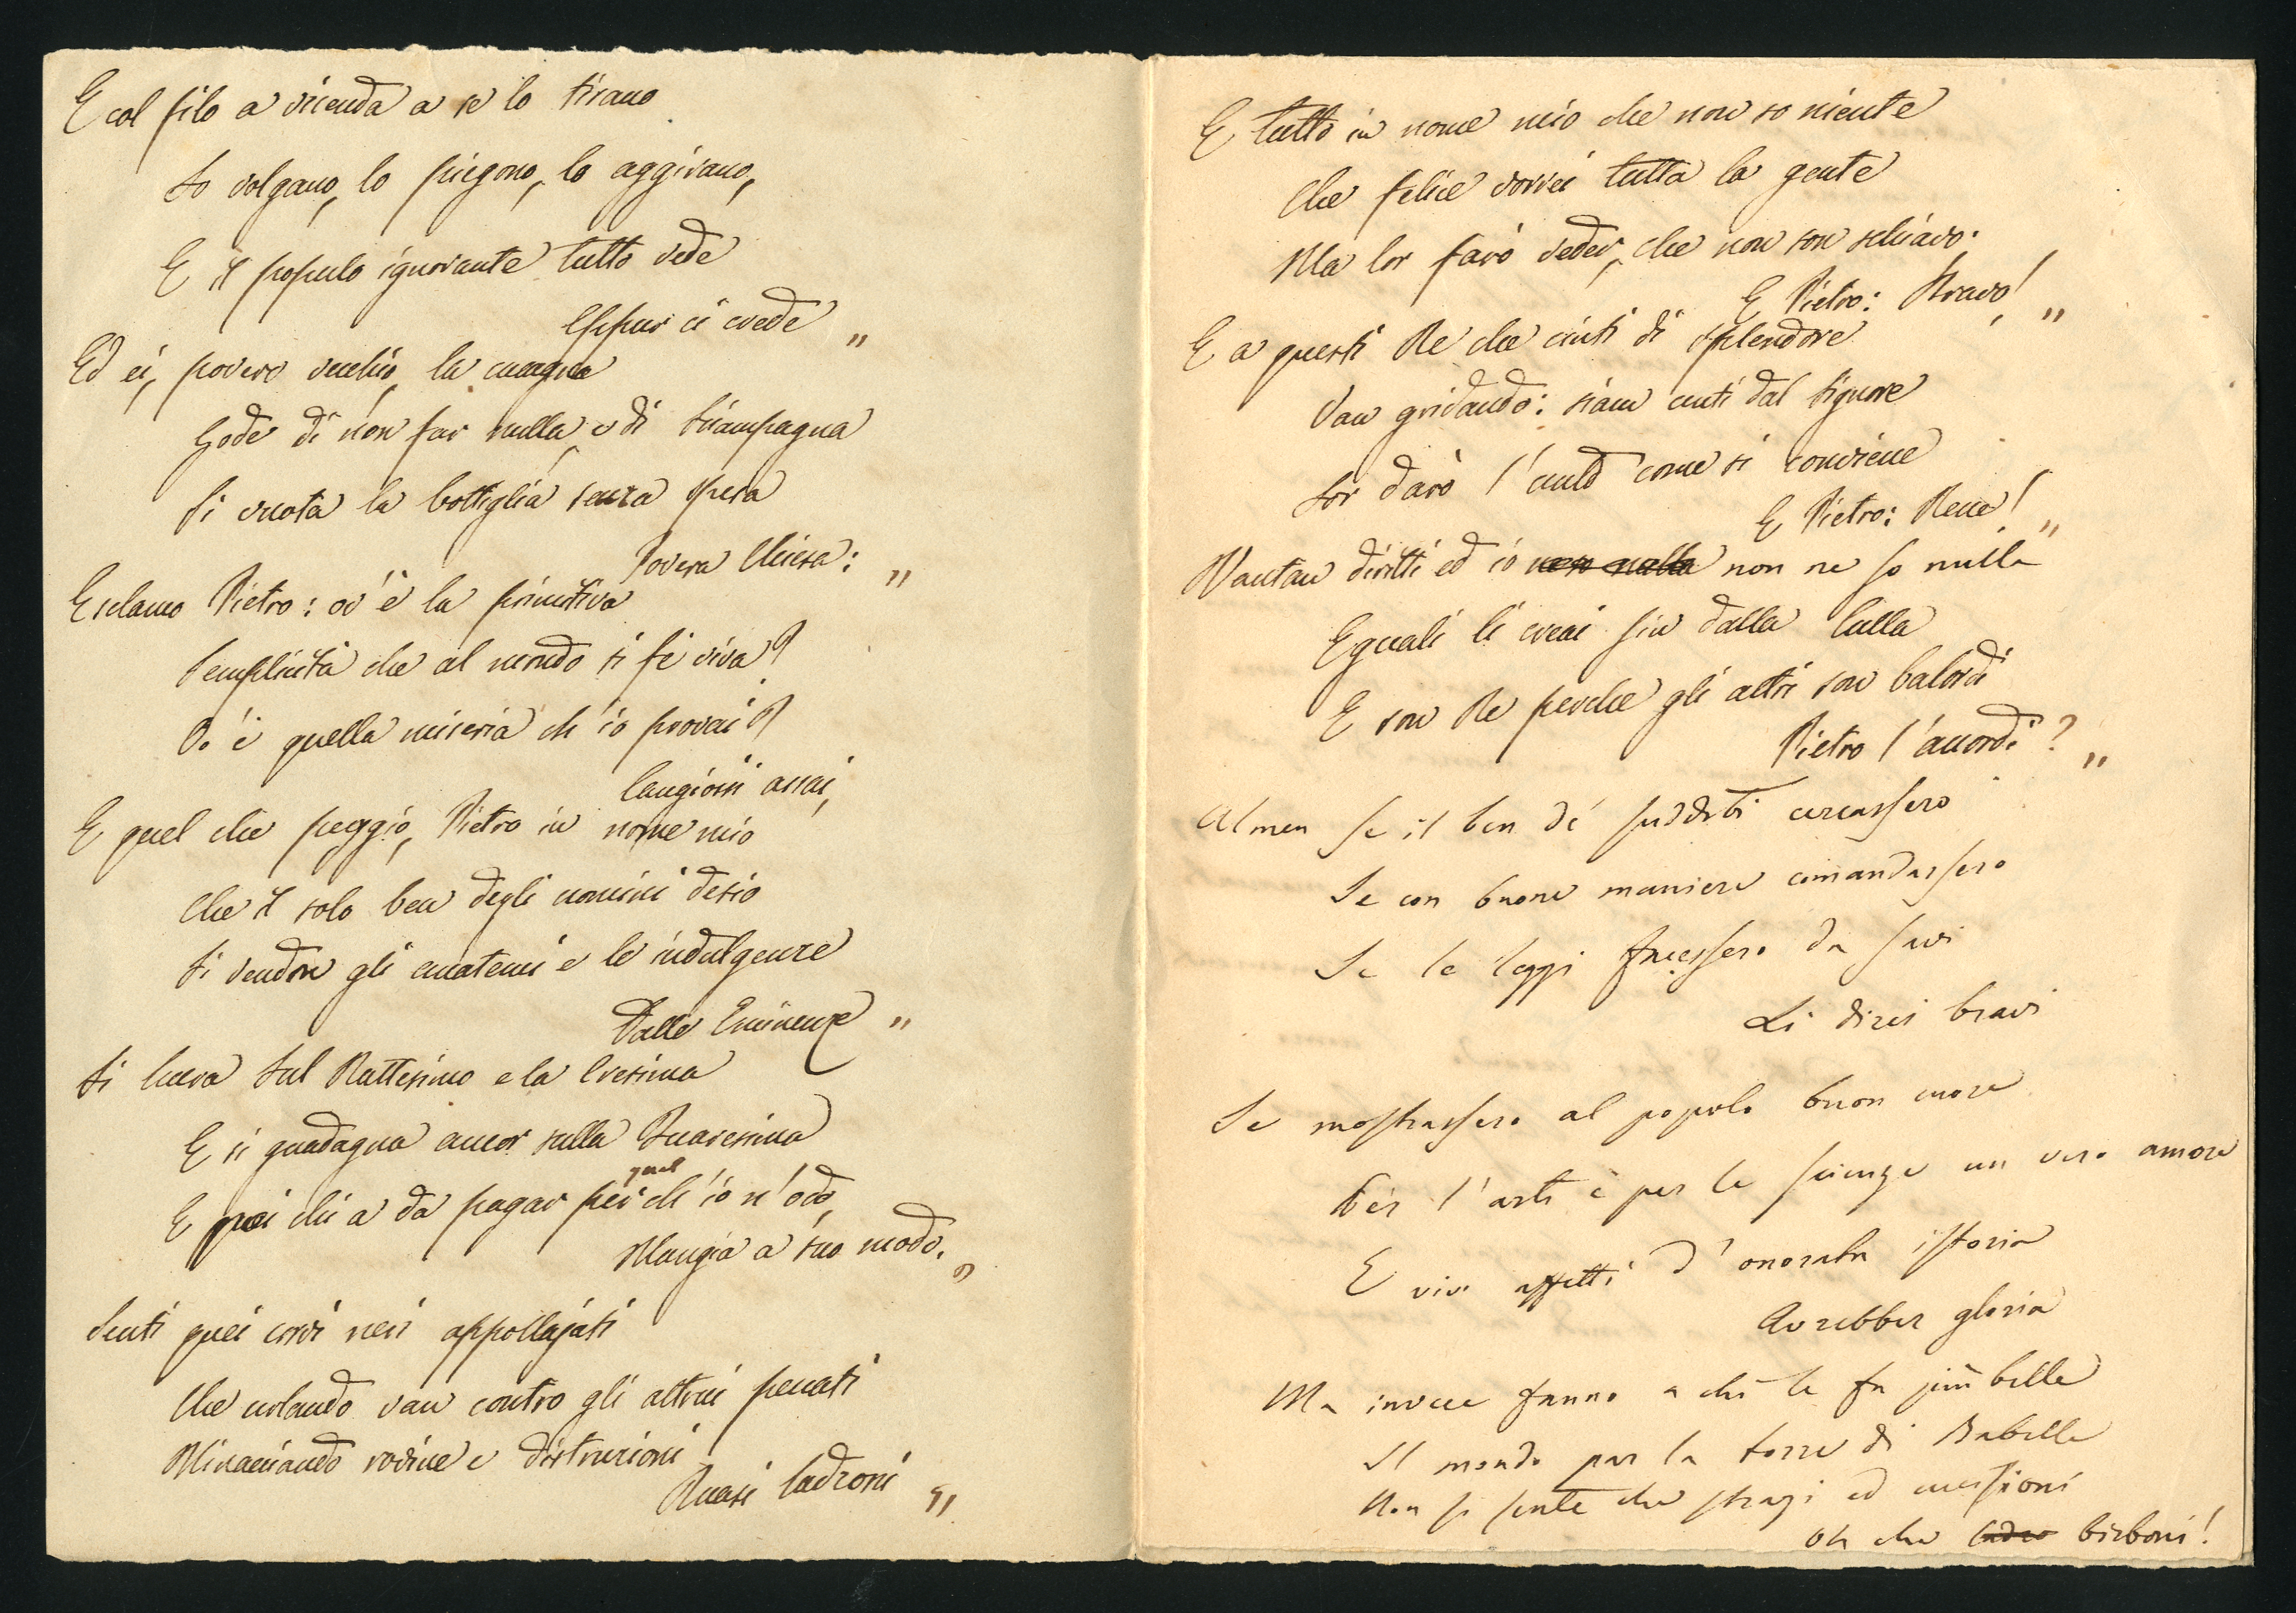 E col filo a vicenda a se lo tirano
Lo volgano, lo piegono, lo aggirano,
E il populo ignorante tutto vede
Eppur ci crede „
Ed ei, povero vecchio, la cucagna
Gode di non far nulla, e di Sciampagna
Si vuota la bottiglia senza spesa
Povera Chiesa: „
Esclamo Pietro: ov'è la primitiva
Semplicità che al mondo si fè viva?
Ov'è quella miseria ch'io provai?
Cangiossi assai,
E quel che peggio, Pietro in nome mio
Che il solo ben degli uomini desio
Si vendon gli anatemi e le indulgenze
Dalle Eminenze „
Si lucra sul Battesimo e la Cresima
E si guadagna ancor sulla Quaresima
E quei chi a da pagar per quel ch'io n'odo,
Mangia a suo modo. „
Senti quei corvi neri appollajati
Che urlando van contro gli altrui peccati
Minacciando rovine e distruzioni
Quasi ladroni „
E tutto in nome mio che non so niente
Che felice vorrei tutta la gente
Ma lor farò veder, che non son schiavo.
E Pietro: Bravo! „
E a questi Re che cinti di splendore
Van gridando: siam unti dal Signore
Lor darò l'unto come si conviene
E Pietro: Bene! „
Vantan diritti ed io non ne so nulla
Eguali li creai sin dalla culla
E son Re perche gli altri son balordi
Pietro l'accordi? „
Almen se il ben dè sudditi cercassero
Se con buone maniere comandassero
Se le leggi facessero da savi
Li direi bravi
Se mostrassero al popolo buon cuore
Per l'arti e per le scienze un vero amore
E vivi affetti d'onorata istoria
Avrebber gloria
Ma invece fanno a chi le fa più belle
Il mondo par la torre di Babelle
Non si sente che stragi ed uccisioni
Oh che birboni!